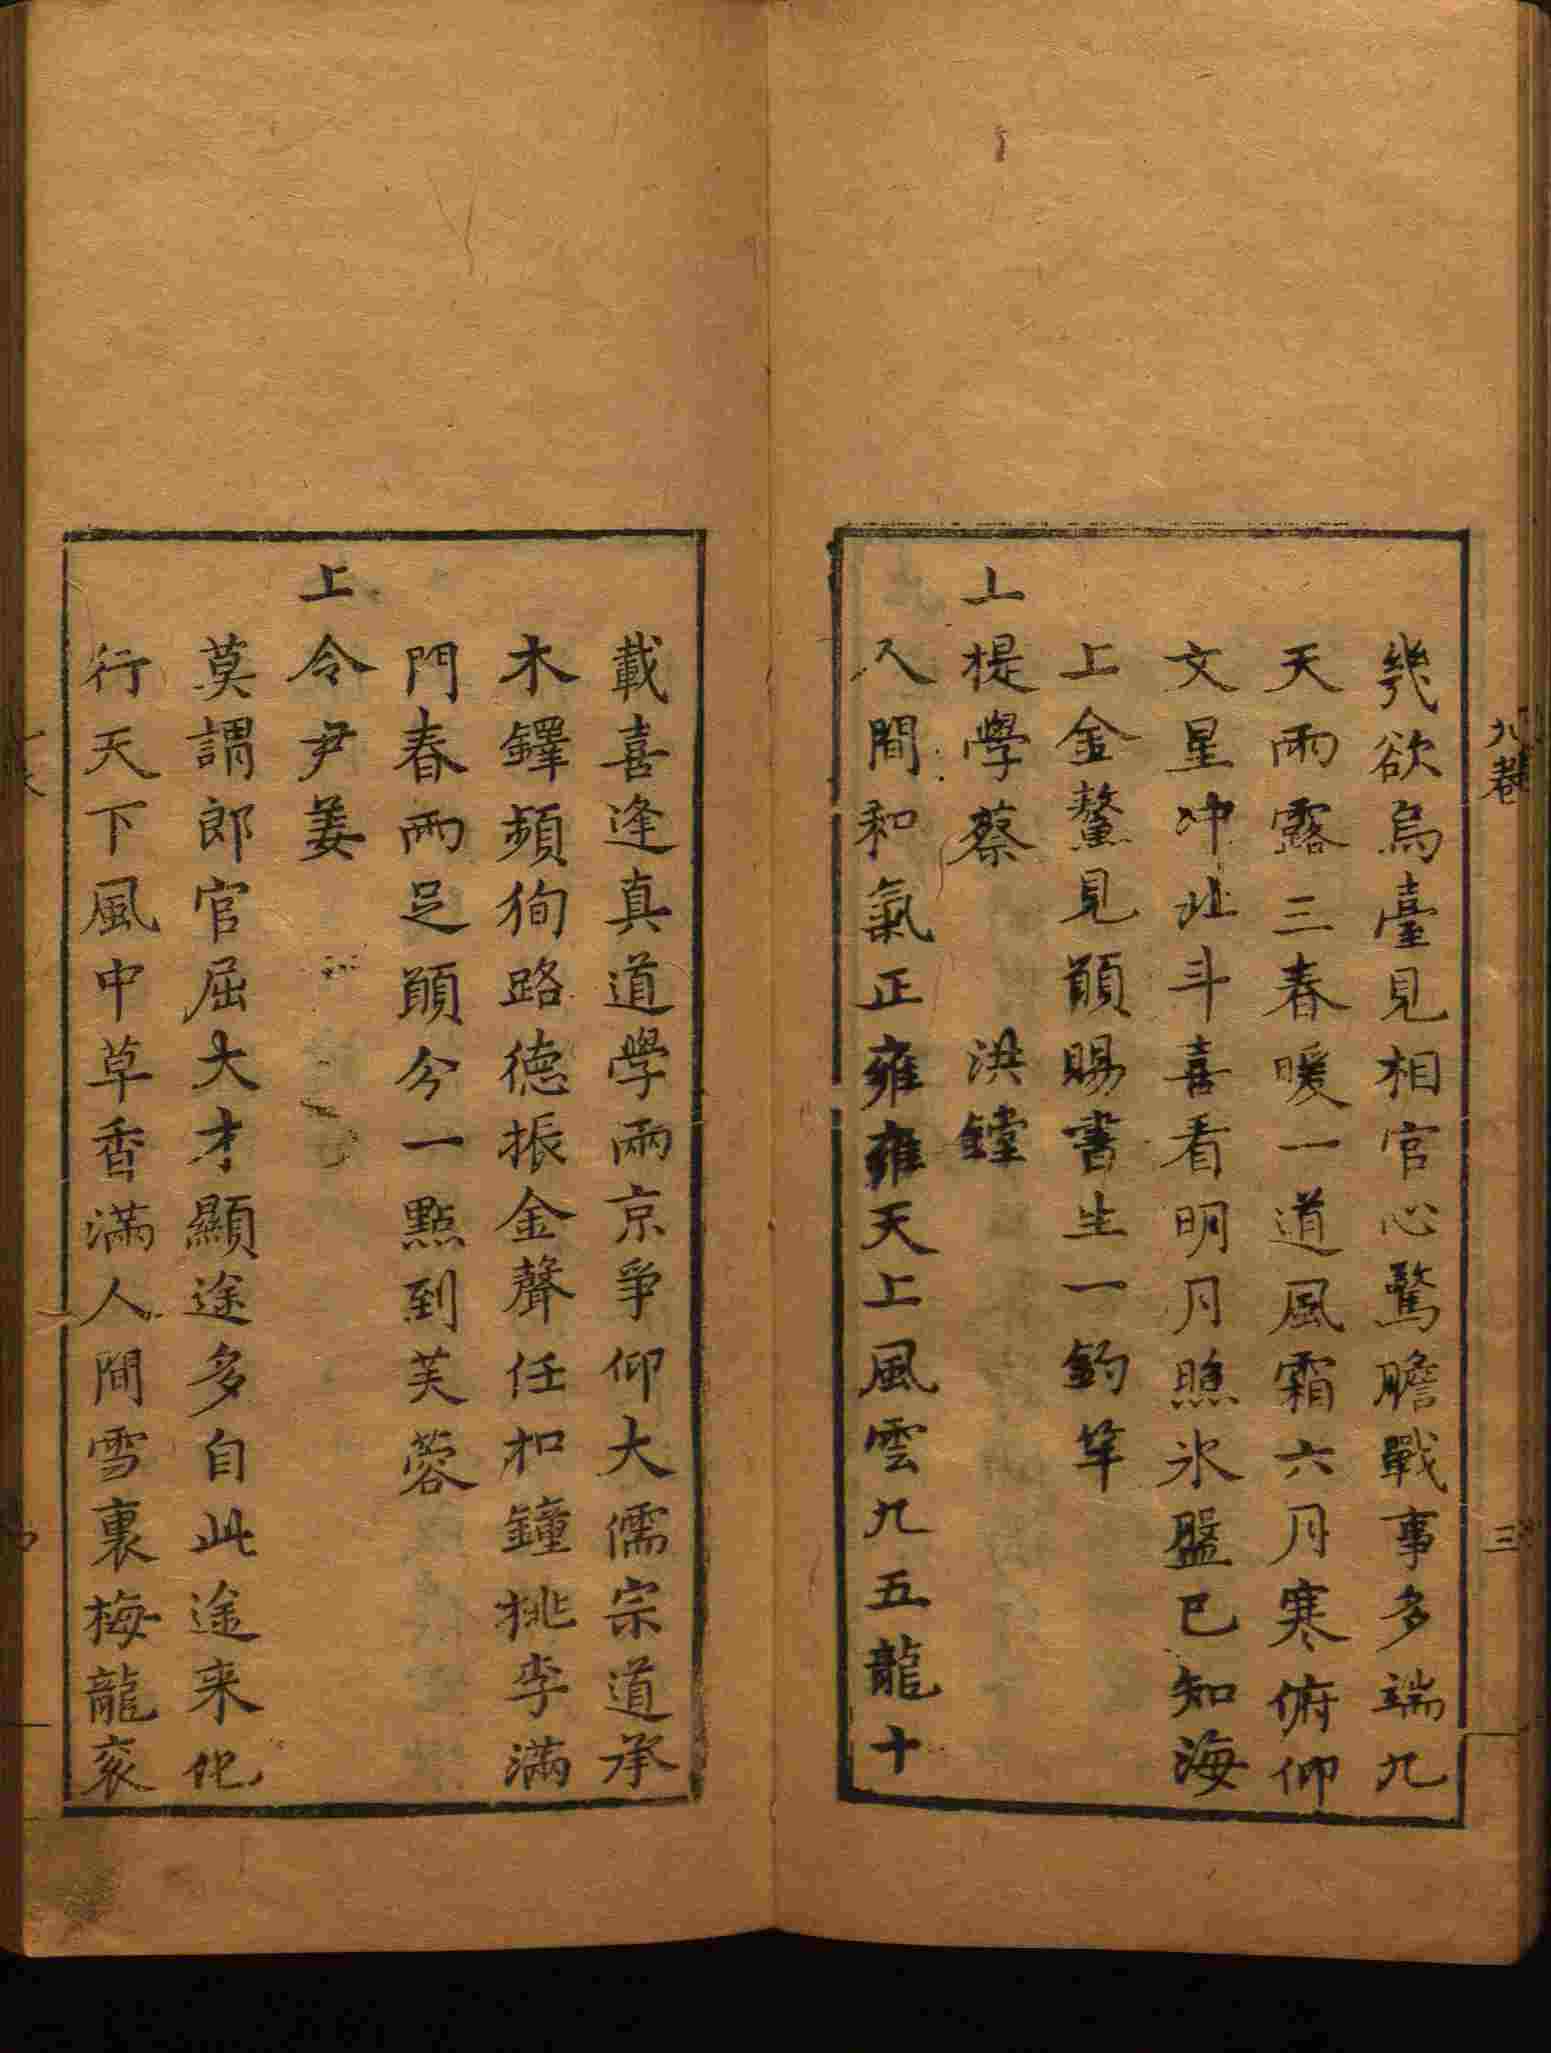 八卷
三
幾欲烏臺見相官心驚膽戰事多端九
天雨露三春暖一道風霜六月寒俯仰
文星冲北斗喜看明月照氷盤已知海
上金鰲見願賜書生一釣竿
上提學蔡 洪鏜
人間和氣正雍雍天上風雲九五龍十
載喜逢真道學兩京爭仰大儒宗道承
木鐸頻徇路德振金聲任扣鐘桃李滿
門春雨足願分一點到芙蓉
上令尹姜
莫謂郎官屈大才顯途多自此途来化
行天下風中草香滿人間雪裏梅龍衮